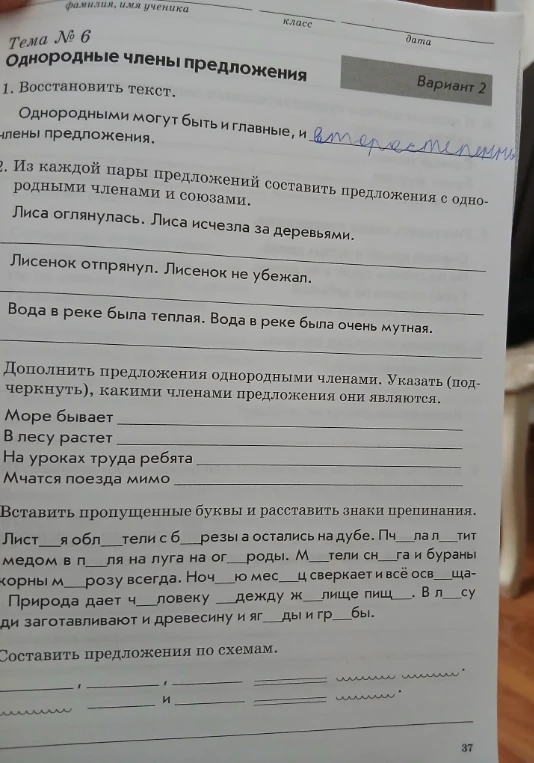 фамилия, имя ученика
класс
дата
Тема № 6
Однородные члены предложения
Вариант 2
1. Восстановить текст.
Однородными могут быть и главные, и второстепенны
члены предложения.
2. Из каждой пары предложений составить предложения с одно-
родными членами и союзами.
Лиса оглянулась. Лиса исчезла за деревьями.
Лисенок отпрянул. Лисенок не убежал.
Вода в реке была теплая. Вода в реке была очень мутная.
Дополнить предложения однородными членами. Указать (под-
черкнуть), какими членами предложения они являются.
Море бывает
В лесу растет
На уроках труда ребята
Мчатся поезда мимо
Вставить пропущенные буквы и расставить знаки препинания.
Лист__я обл__тели с б__резы а остались на дубе. Пч__ла л__тит
медом в п__ля на луга на ог__роды. М__тели сн__га и бураны
корны м__розу всегда. Ноч__ю мес__ц сверкает и всё осв__ща-
Природа дает ч__ловеку __дежду ж__лище пищ__. В л__су
ди заготавливают и древесину и яг__ды и гр__бы.
Составить предложения по схемам.
____, ____, ____ ____ ____ ____.
____ ____ и ____ ____ ____.
37